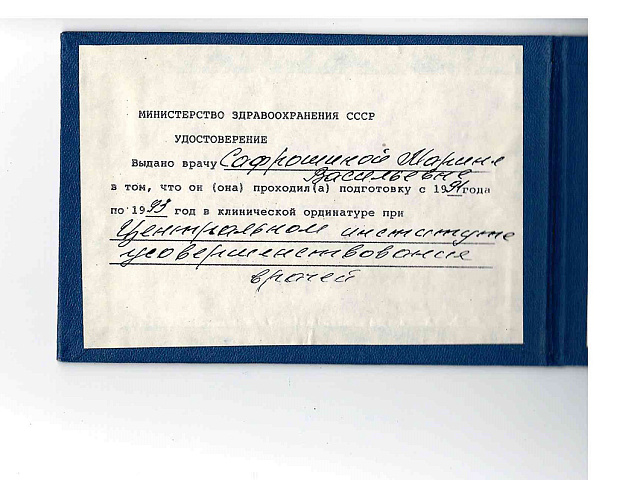 МИНИСТЕРСТВО ЗДРАВООХРАНЕНИЯ СССР
УДОСТОВЕРЕНИЕ
Выдано врачу Сафрошиной Марине
Васильевне
в том, что он (она) проходил(а) подготовку с 1991 года
по 1993 год в клинической ординатуре при
Центральном институте
усовершенствования
врачей